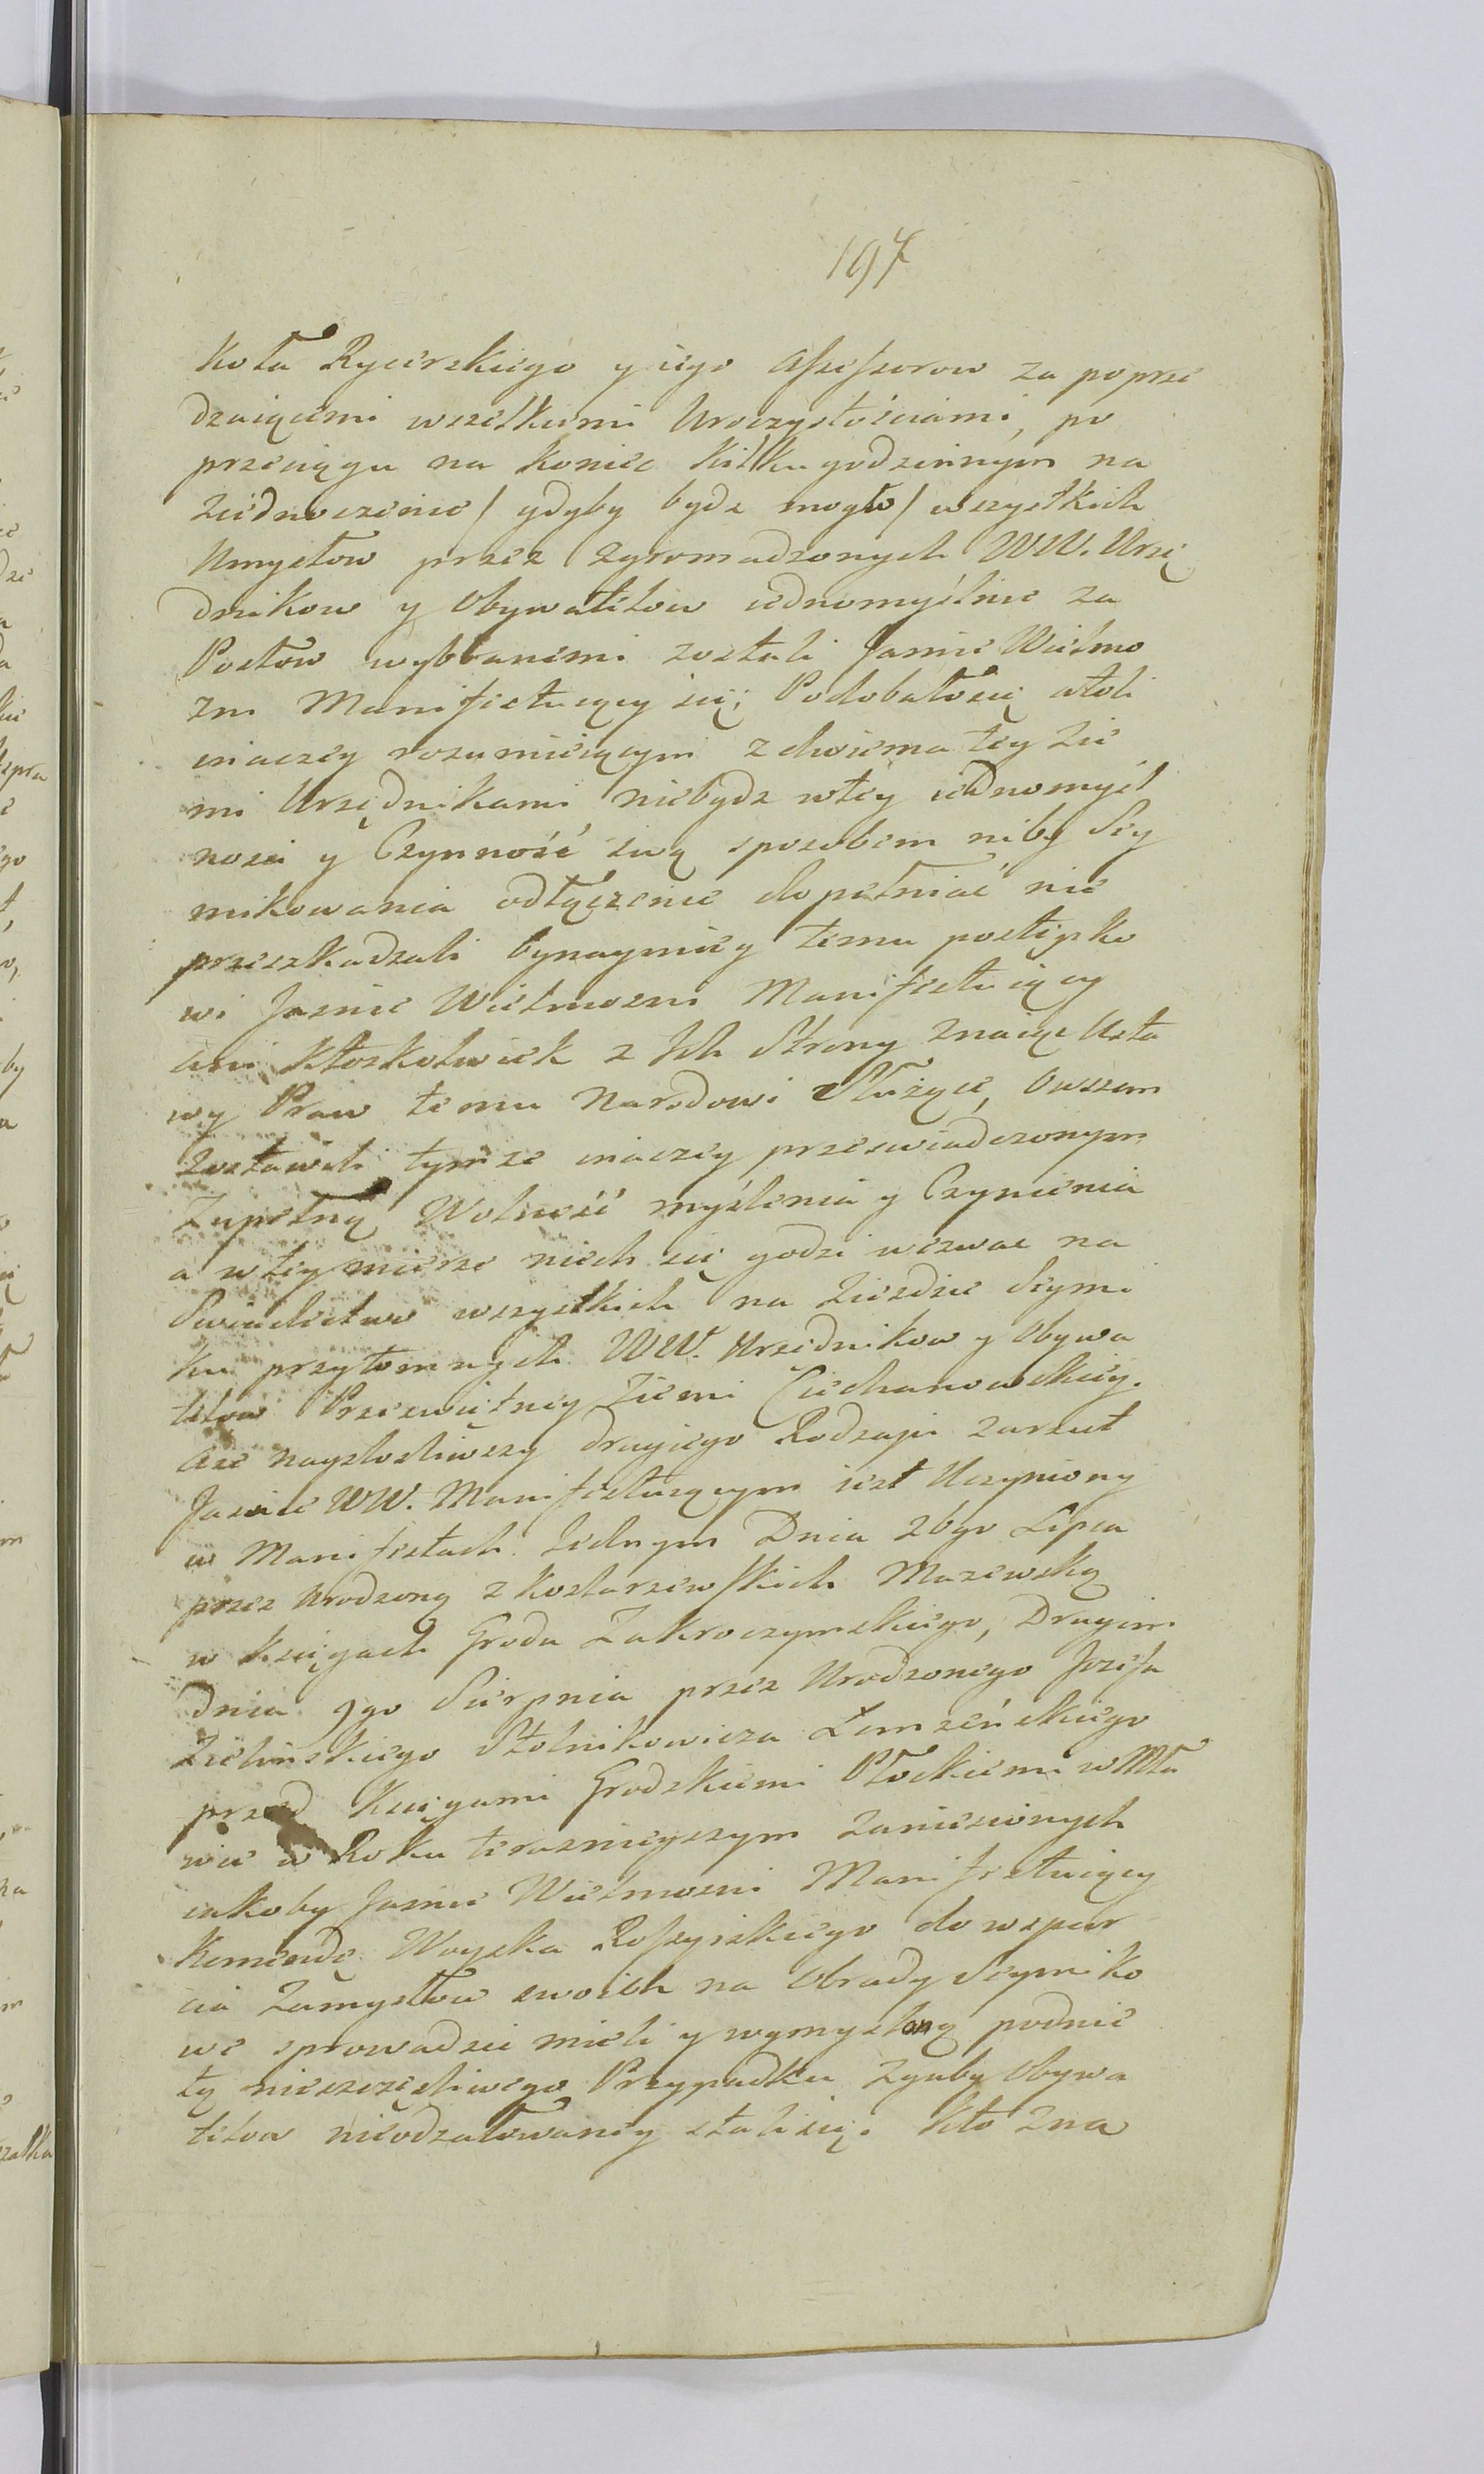 197
Koła Rycerskiego y iego Assessorow za poprze
dzaiącemi wszelkiemi Uroczystościami, po
przeciągu na koniec kilku godzinnym na
Ziednoczenie / gdyby bydz mogło / wszystkich
Umysłow przez zgromadzonych WW. Urzę
dnikow y Obywatelow iednomyślnie za
Posłow wybranemi zostali Jaśnie Wielmo
zni Manifestuiący się; Podobało się atoli
inaczey rozumieiącym z dwiema tey Zie
mi Urzędnikami niebydz wtey iednomyśl
nosci y Czynność swą sposobem niby Sey
mikowania odłącznie dopełniać nie
przeszkadzali bynaymniey temu postępko
wi Jasnie Wielmozni Manifestuiący
ani Ktoszkolwiek z Ich Strony znaiąc Usta
wy Praw temu Narodowi Służące, Owszem
zostawili tymze inaczey przeswiadczonym
Zupełną Wolność myślenia y Czynienia
a wtey mierze niech się godzi wezwac na
Swiadectwo wszystkich na Zieździe Seymi
ku przytomnych WW. Urzędnikow y Obywa
telow Przeswietney Ziemi Ciechanowskiey.
Aze nayzłosliwszy drugiego Rodzaju zarzut
Jasnie WW. Manifestuiącym iest Uczyniony
w Manifestach Iednym Dnia 26go Lipca
przez Urodzoną z Kostarzewskich Mazewską
w Księgach Grodu Zakroczymskiego, Drugim
dnia 9go Sierpnia przez Urodzonego Jozefa
Zielinskiego Stolnikowicza Łomzeńskiego
przed Księgami Grodzkiemi Płockiemi w Mła
wie w Roku teraznieyszym zaniesionych
iakoby Jasnie Wielmozni Manifestuiący
Komendę Woyska Rossyiskiego do wspar
cia Zamysłow swoich na Obrady Seymiko
we sprowadzic mieli y wymyśloną podnie
tą nieszczęsliwego Przypadku zguby Obywa
telow nieodzałowaney stali się. Kto zna